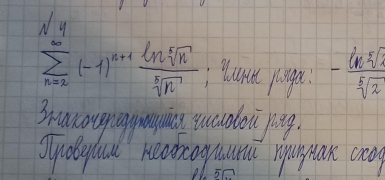 N 4
∞
∑ (-1)ⁿ⁺¹ ln ⁵√n / ⁵√n ; Члены ряда: - ln ⁵√2 / ⁵√2
n=2
Знакочередующийся числовой ряд.
Проверим необходимый признак сход
ln ⁵√n